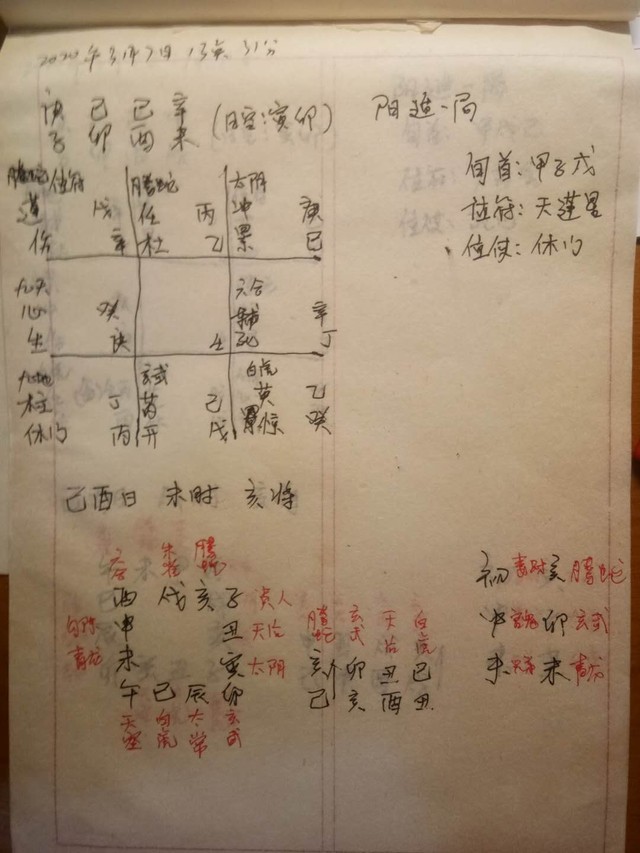 2020年3月7日 13点31分
庚 己 己 辛
子 卯 酉 未 (日空:寅卯) 阳遁一局
旬首:甲子戊
值符:天蓬星
值使:休门
螣蛇 值符 螣蛇 太阴
蓬 戊 任 丙 冲 庚
伤 辛 杜 乙 景 巳
九天 六合
心 癸 辅 辛
生 庚 壬 死 丁
九地 玄武 白虎
柱 丁 芮 己 英 乙
休门 丙 开 戊 惊 癸
己酉日 未时 亥将
六合 朱雀 螣蛇
酉 戌 亥 子 贵人
勾陈 申 丑 天后
青龙 未 寅 太阴
午 巳 辰 卯
天空 白虎 太常 玄武
螣蛇 玄武 天后 白虎
亥 卯 丑 巳
己 亥 酉 丑
初 妻财 亥 螣蛇
中 官鬼 卯 玄武
末 兄弟 未 青龙